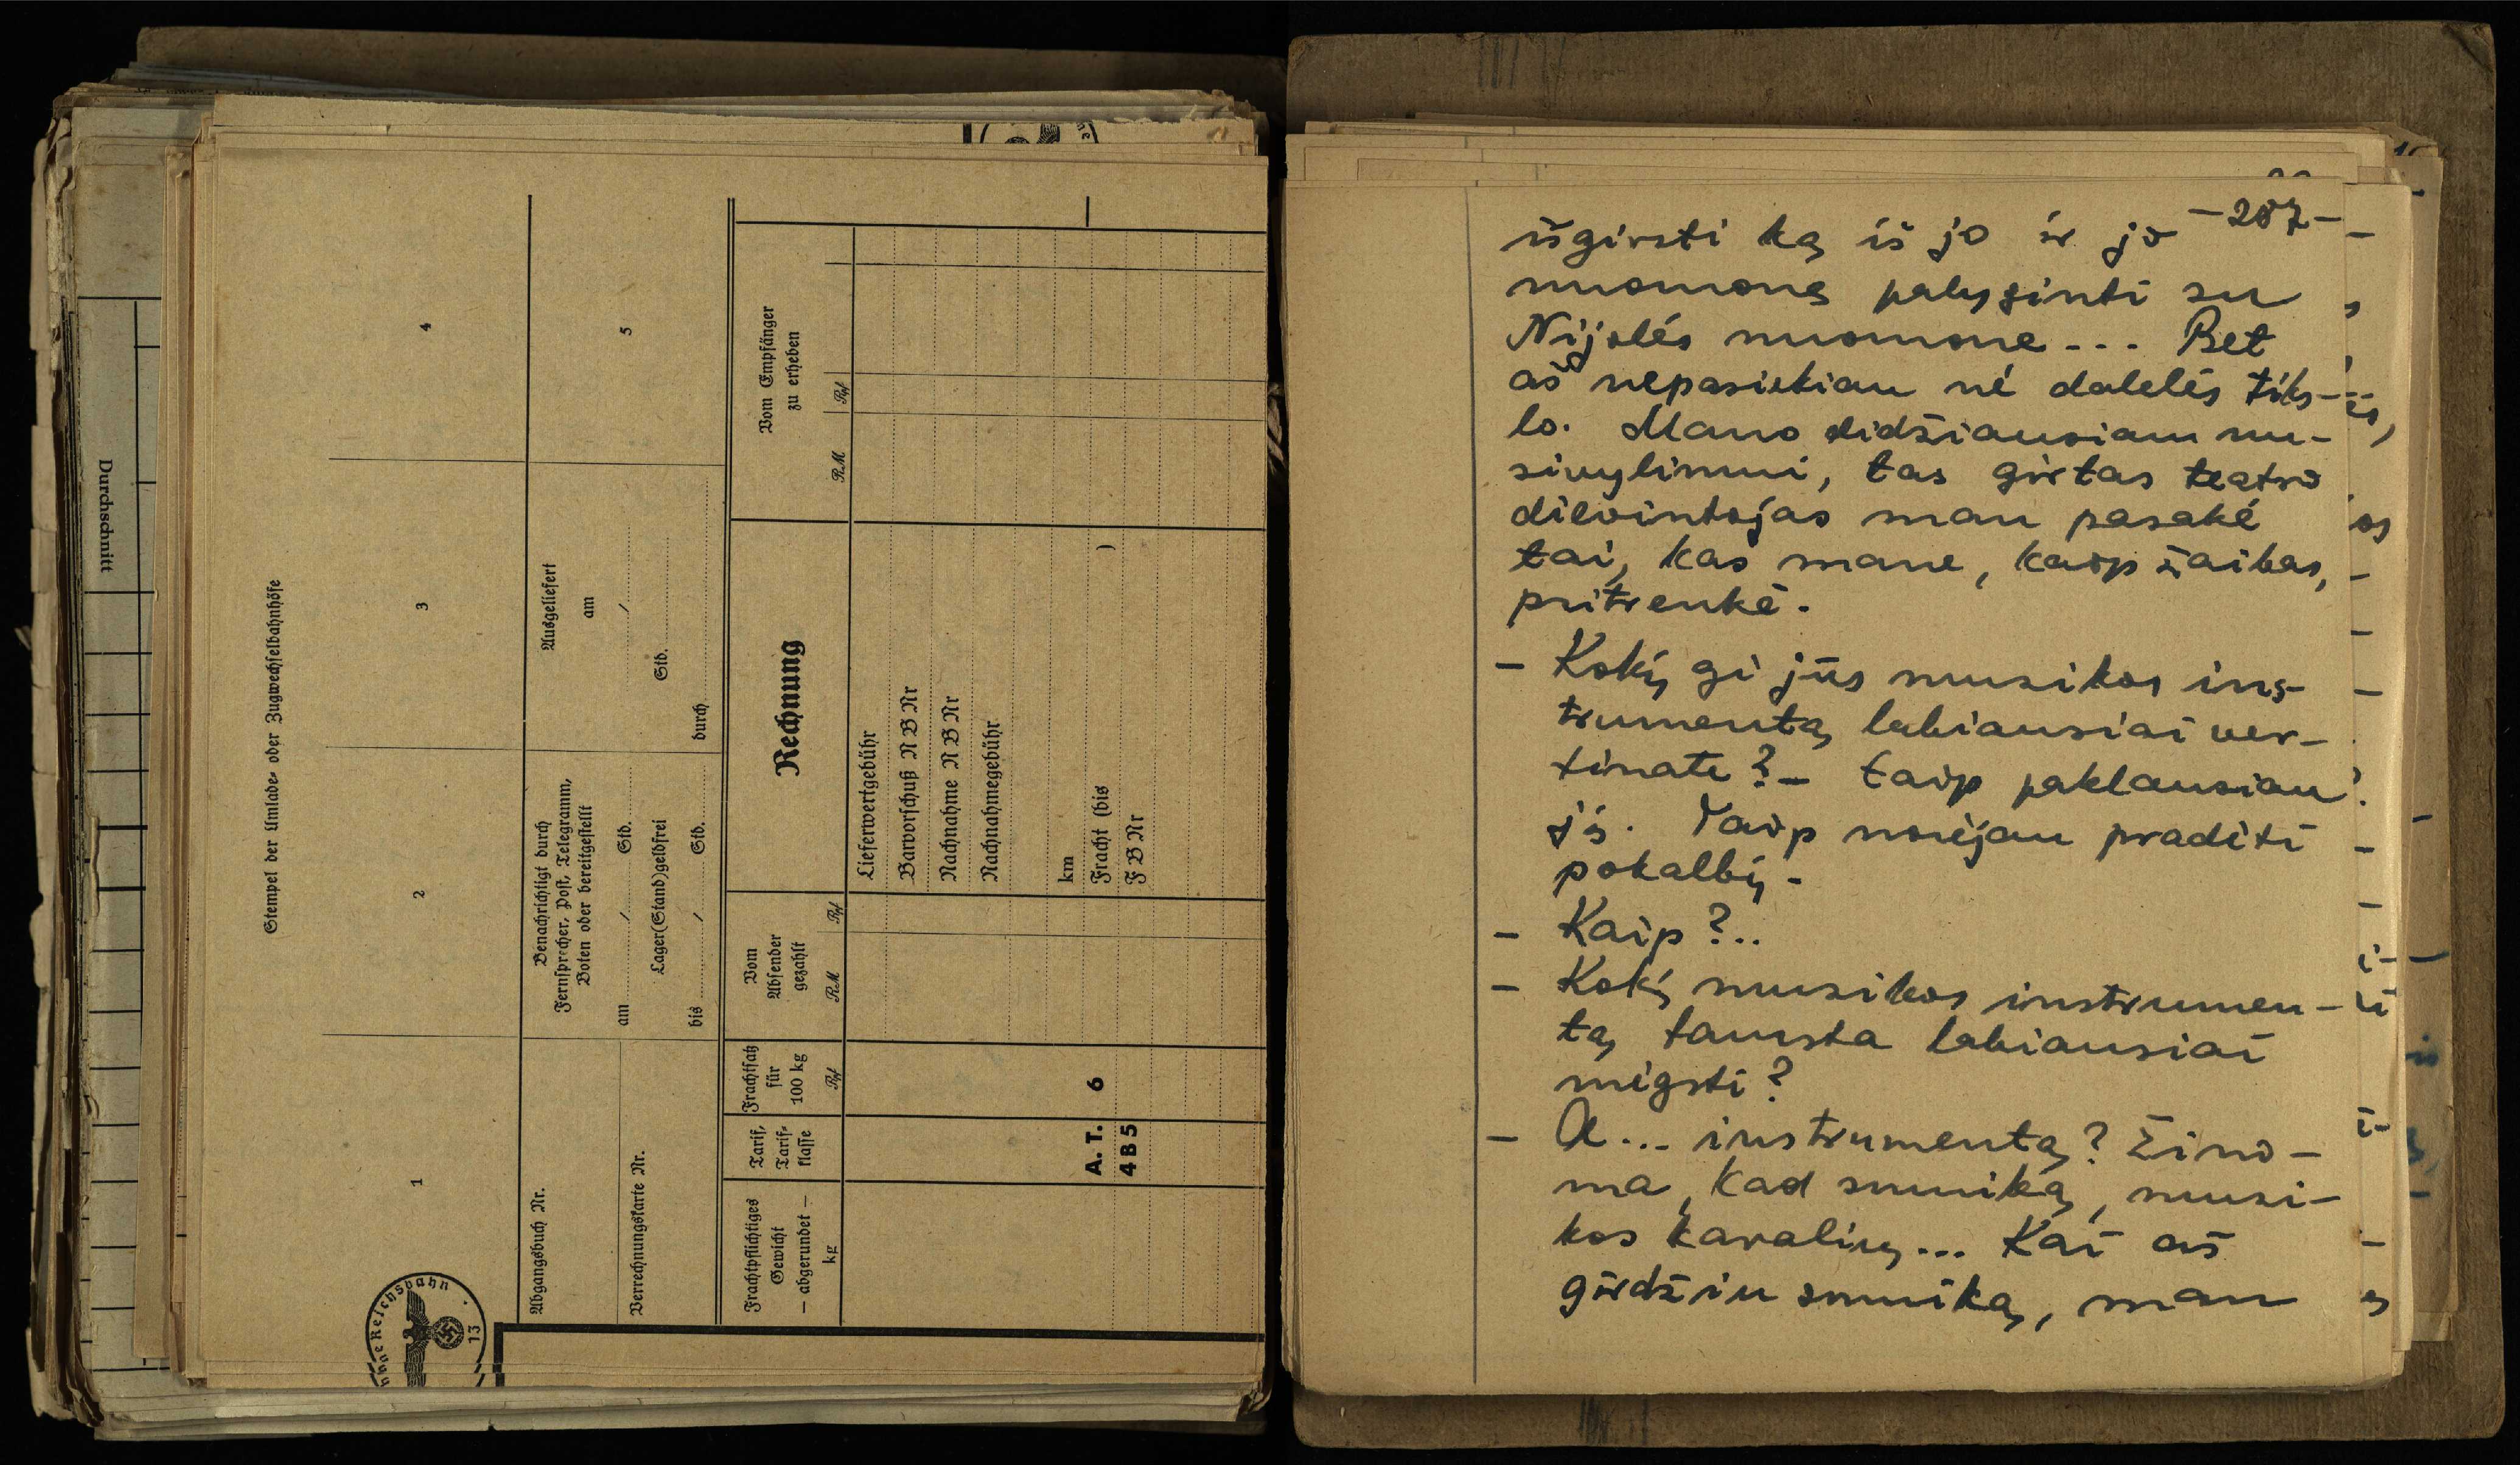 Durchschnitt
Stempel der Umlade- oder Zugwechselbahnhöfe
1
2
3
4
Abgangsbuch Nr.
Verrechnungskarte Nr.
Benachrichtigt durch
Fernsprecher, Post, Telegramm,
Boten oder bereitgestellt
am ........../.......... Std. ..........
Lager(Stand)geldfrei
bis ........../.......... Std. ..........
Ausgeliefert
am
........../..........
Std. ..........
durch ..........
5
Frachtpflichtiges
Gewicht
— abgerundet —
kg
Tarif,
Tarif-
klasse
Frachtsatz
für
100 kg
Rpf
Vom
Absender
gezahlt
RM Rpf
Rechnung
Vom Empfänger
zu erheben
RM Rpf
Lieferwertgebühr
Barvorschuß N B Nr
Nachnahme N B Nr
Nachnahmegebühr
km
A. T. 6 Fracht (bis )
4 B 5 F B Nr
Reichsbahn
13
-207-
išgirsti ką iš jo ir jo
nuomonę palyginti su
Nijolės nuomone... Bet
aš nepasiekiau nė dalelės tiks-
lo. Mano didžiausiam nu-
sivylimui, tas girtas teatro
dievintojas man pasakė
tai, kas mane, kaip žaibas,
pritrenkė.
- Kokį gi jūs muzikos ins-
trumentą labiausiai ver-
tinate? - taip paklausiau
jį. Taip norėjau pradėti
pokalbį.
- Kaip?..
- Kokį muzikos instrumen-
tą tamsta labiausiai
mėgsti?
- A... instrumentą? Žino-
ma, kad smuiką, muzi-
kos karalių... Kai aš
girdžiu smuiką, man